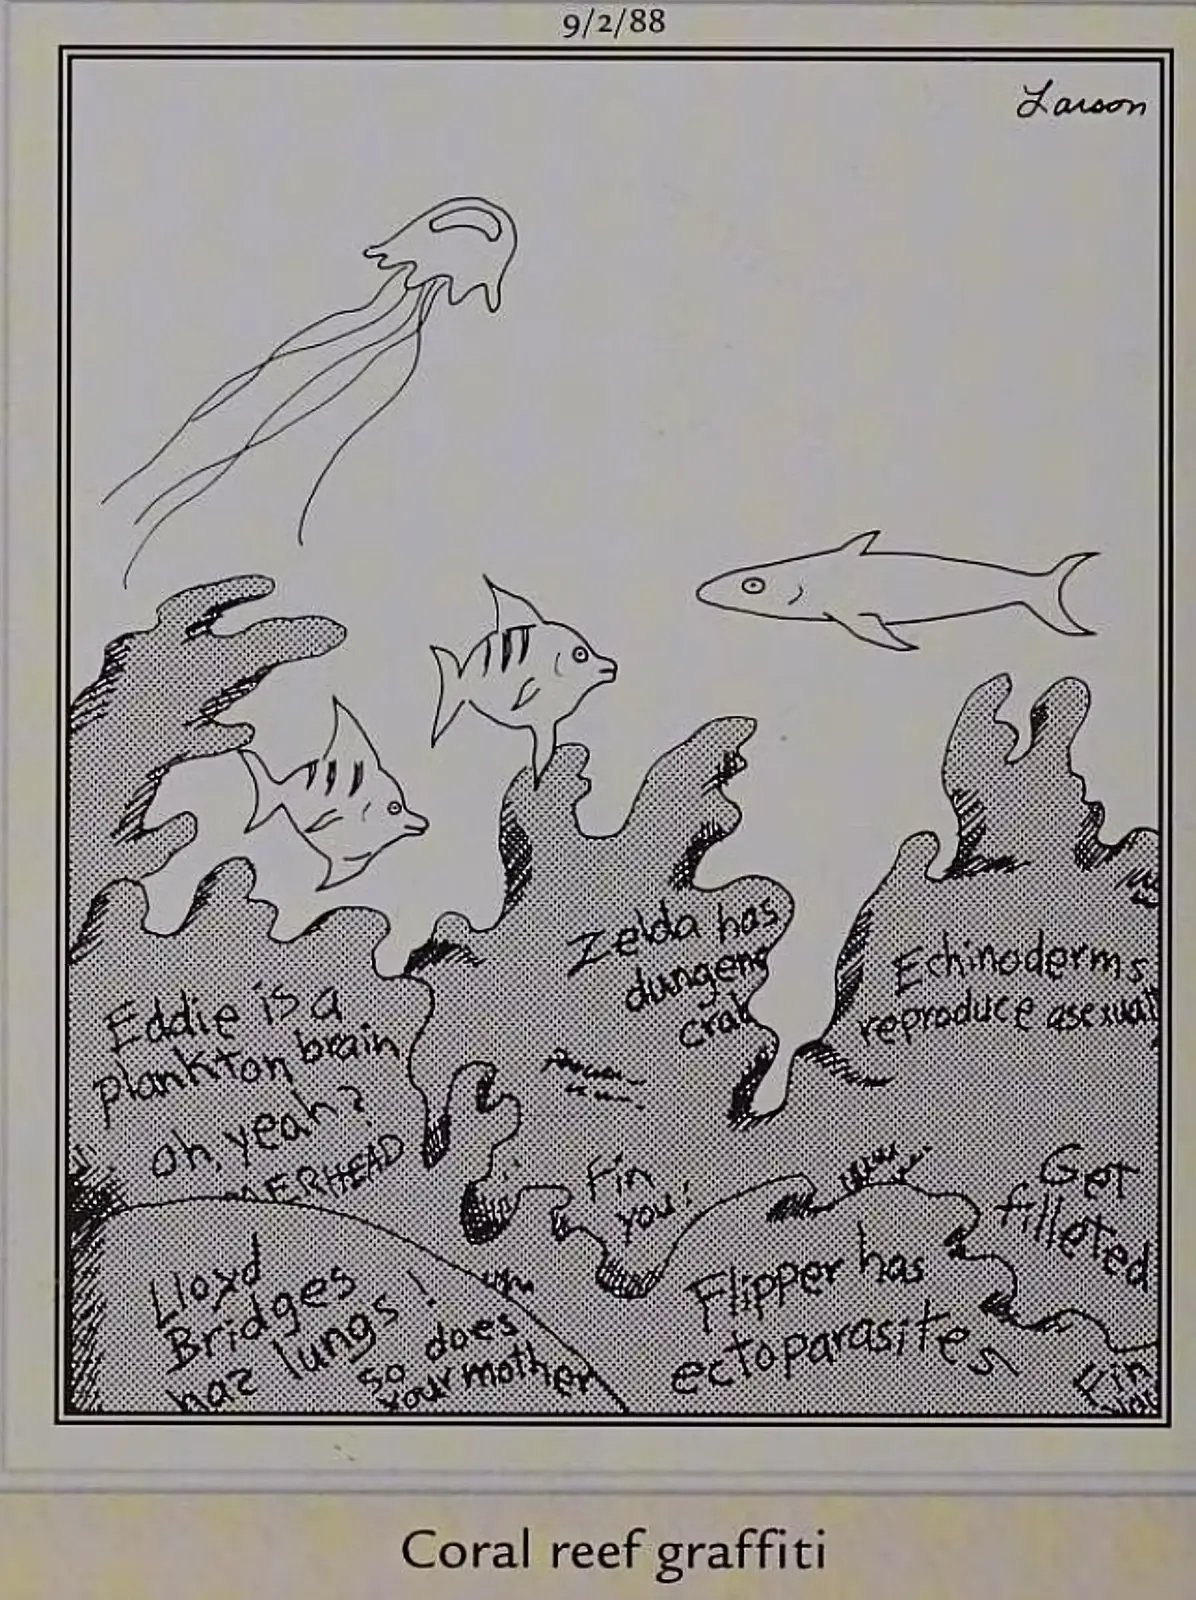 9/2/88
Larson
Zelda has
dungeness
crabs
Echinoderms
reproduce asexual
Eddie is a
plankton brain
oh, yeah?
ERHEAD
Fin
you!
Get
filleted
Lloyd
Bridges
haz lungs!
so does
your mother
Flipper has
ectoparasites
Fin
Coral reef graffiti